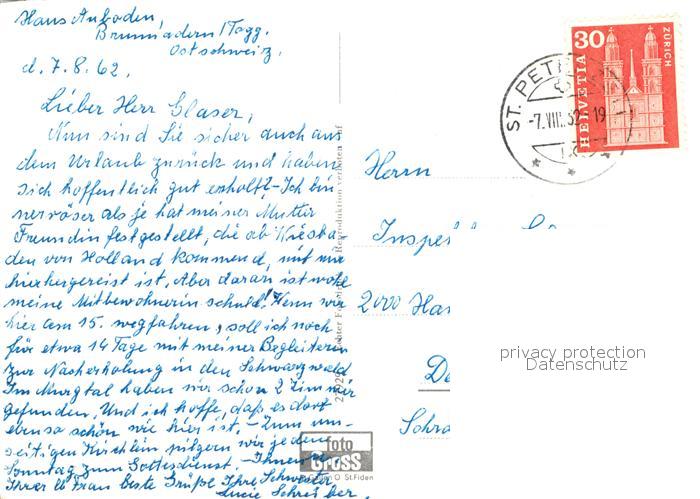 Haus Anboden,
Brunnadern / Togg.
Ostschweiz.
d. 7.8.62.
Lieber Herr Glaser,
Nun sind Sie sicher auch aus
dem Urlaub zurück und haben
sich hoffentlich gut erholt? - Ich bin
nervöser als je hat meiner Mutter
Freundin festgestellt, die ab Wiesba-
den von Holland kommend, mit mir
hierhergereist ist. Aber daran ist wohl
meine Mitbewohnerin schuld! Wenn wir
hier am 15. wegfahren, soll ich noch
für etwa 14 Tage mit meiner Begleiterin
zur Nacherholung in den Schwarzwald
Im Murgtal haben wir schon 2 Zimmer
gefunden. Und ich hoffe, daß es dort
ebenso schön wie hier ist. - Zum
seitigen Kirchlein pilgern wir jeden
Sonntag zum Gottesdienst. - Ihnen u.
Ihrer lb Frau beste Grüße Ihre Schwester
Lucie Schreiber
Reproduktion verboten
foto
Gross
St. Fiden
Herrn
Inspe
2000 Ha
De
Schra
30
HELVETIA
ZÜRICH
ST. PET
-7.VIII.62-19
privacy protection
Datenschutz